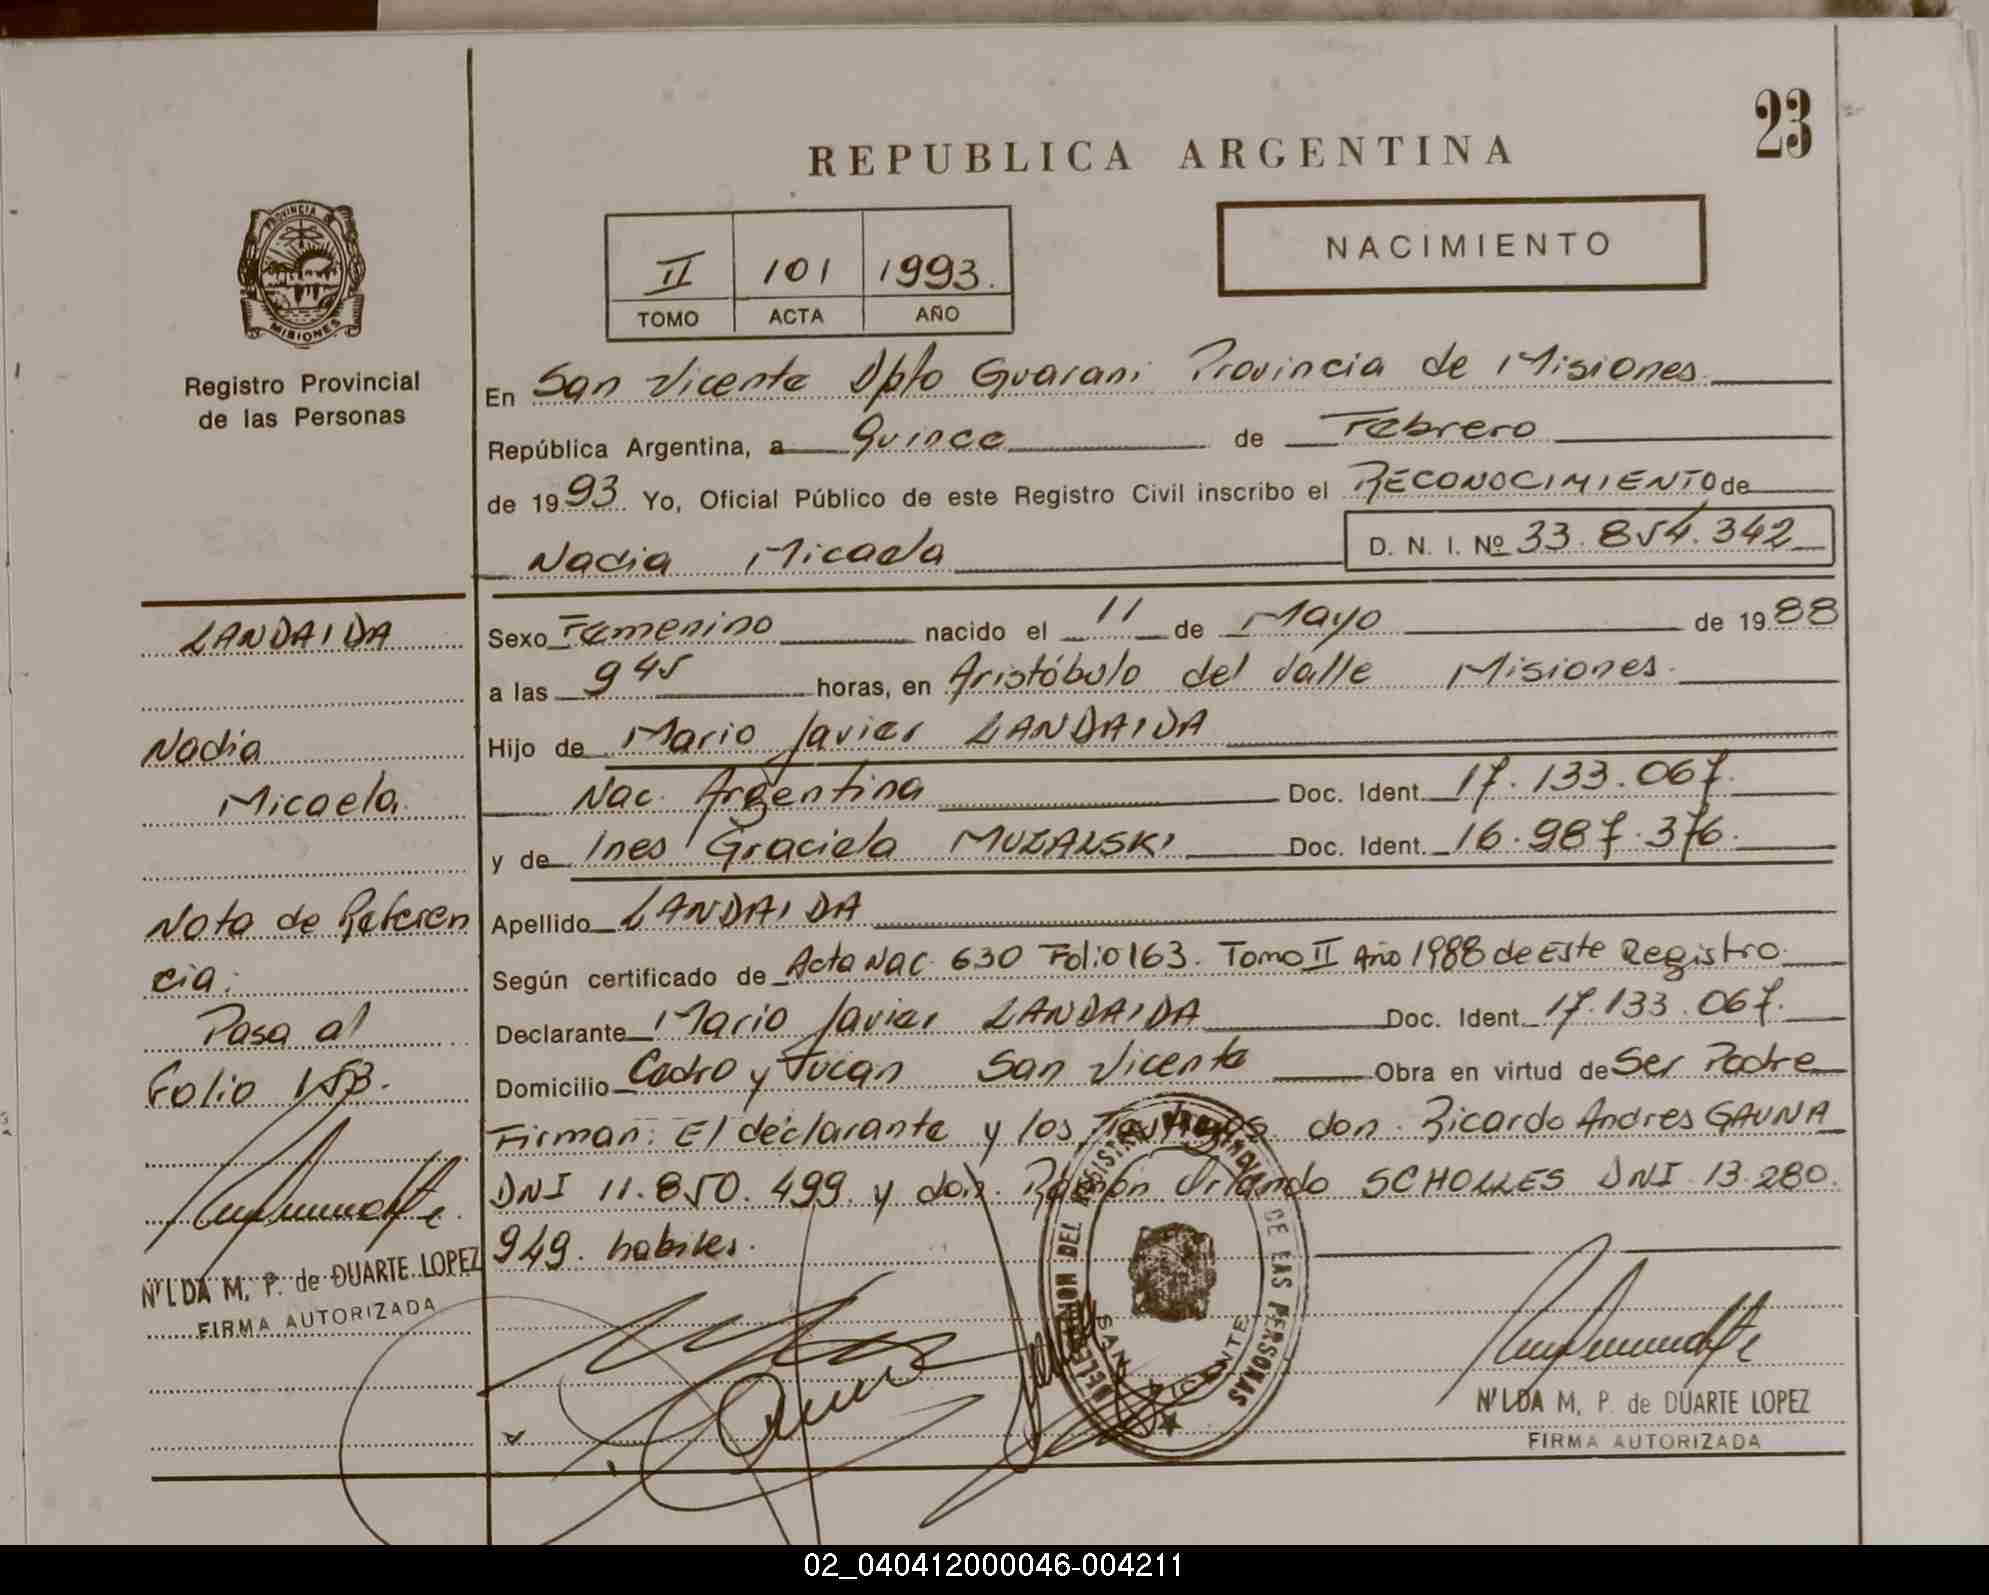 23
REPUBLICA ARGENTINA
NACIMIENTO
II 101 1993.
TOMO ACTA AÑO
PROVINCIA DE
MISIONES
Registro Provincial
de las Personas
En San Vicente Dpto Guarani Provincia de Misiones
República Argentina, a Quince de Febrero
de 1993. Yo, Oficial Público de este Registro Civil inscribo el RECONOCIMIENTO de
Nadia Micaela D. N. I. Nº 33.854.342
Sexo Femenino nacido el 11 de Mayo de 1988
a las 9 45 horas, en Aristóbulo del Valle Misiones.
Hijo de Mario Javier LANDAIDA
Nac. Argentina Doc. Ident. 17.133.067.
y de Ines Graciela MUZALSKI Doc. Ident. 16.987.376.
Apellido LANDAIDA
Según certificado de Acta Nac. 630 Folio 163. Tomo II Año 1988 de Este Registro.
Declarante Mario Javier LANDAIDA Doc. Ident. 17.133.067.
Domicilio Cedro y Tucan San Vicente Obra en virtud de Ser Padre
Firman: El declarante y los Testigos don. Ricardo Andres GAUNA
DNI 11.850.499. y don. Ramón Orlando SCHOLLES DNI 13.280.
949. habiles.
LANDAIDA
Nadia
Micaela.
Nota de Referen
cia:
Pasa al
Folio 153.
NILDA M. P. de DUARTE LOPEZ
FIRMA AUTORIZADA
DELEGACION DEL REGISTRO PROVINCIAL DE LAS PERSONAS
SAN VICENTE
NILDA M. P. de DUARTE LOPEZ
FIRMA AUTORIZADA
02_040412000046-004211